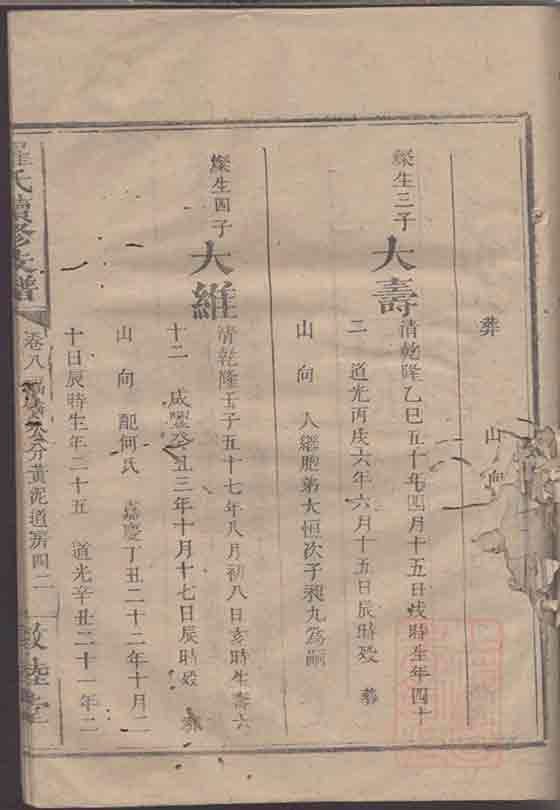 葬　山　向
燦生三子　大壽　清乾隆乙巳五十年四月十五日戌時生年四十
二　道光丙戌六年六月十五日辰時歿　葬
山　向　人繼胞弟大恒次子昶九為嗣
燦生四子　大維　清乾隆壬子五十七年八月初八日亥時生壽六
十二　咸豐癸丑三年十月十七日辰時歿　葬
山　向　配何氏　嘉慶丁丑二十二年十月二
十日辰時生年二十五　道光辛丑二十一年二
羅氏續修支譜　卷八　公分黃泥道房四二　敦睦堂